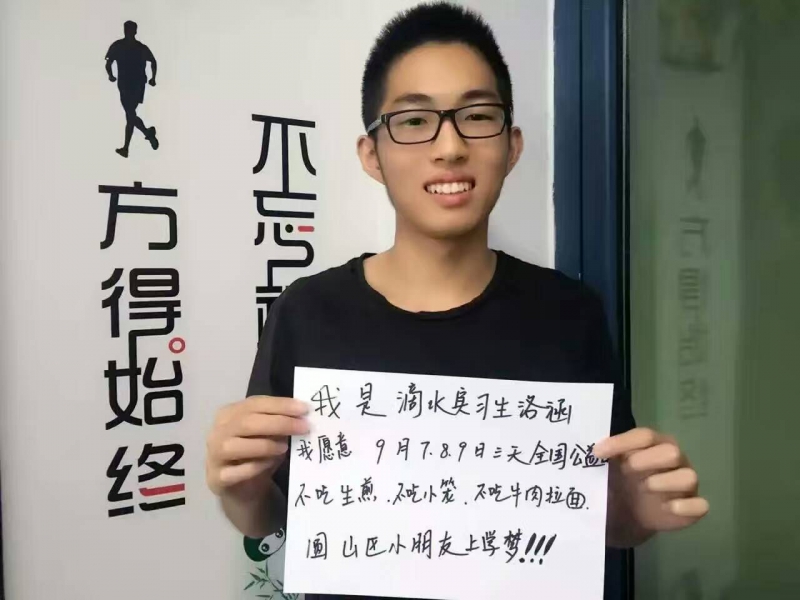 不忘
方得始终
我是滴水实习生洛涵
我愿意 9月7.8.9日三天全国公益
不吃生煎、不吃小笼、不吃牛肉拉面.
圆山区小朋友上学梦!!!